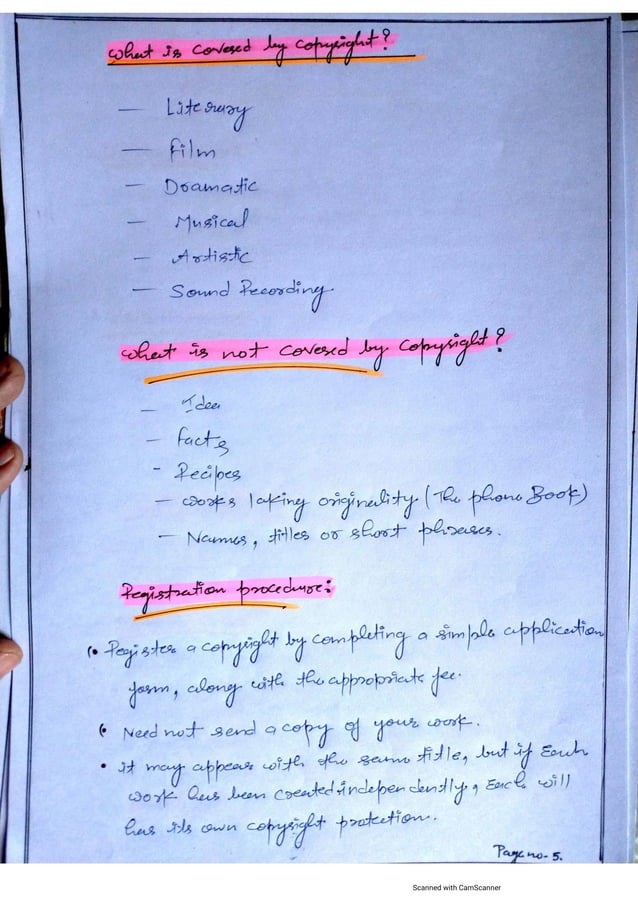 What is covered by copyright?
— Literary
— Film
— Dramatic
— Musical
— Artistic
— Sound Recording.
What is not covered by copyright?
— Idea
— Facts
- Recipes
— works laking originality. (The phone Book)
— Names, titles or short phrases.
Registration procedure:
(• Register a copyright by completing a simple application
form, along with the appropriate fee.
(• Need not send a copy of your work.
• it may appear with the same title, but if Each
work has been created independently, Each will
has its own copyright protection.
Page no- 5.
Scanned with CamScanner